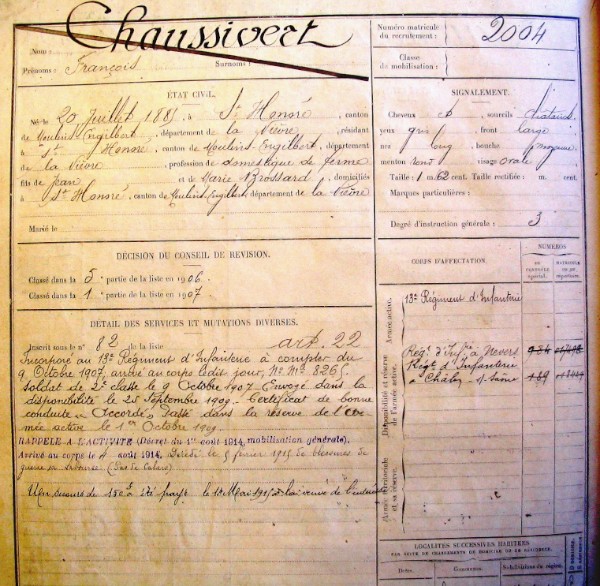 Chaussivert
Nom :
Prénoms : François Surnoms :
Numéro matricule
du recrutement : 2004
Classe
de mobilisation :
ÉTAT CIVIL.
Né le 20 Juillet 1885 à St Honoré, canton
de Moulins Engilbert, département de la Nièvre, résidant
à St Honoré, canton de Moulins Engilbert, département
de la Nièvre, profession de domestique de ferme
fils de Jean et de Marie Brossard, domiciliés
à St Honoré, canton de Moulins Engilbert, département de la Nièvre
Marié le
SIGNALEMENT.
Cheveux et sourcils châtains
yeux gris, front large
nez long, bouche moyenne
menton rond, visage ovale
Taille : 1 m. 62 cent. Taille rectifiée : m. cent.
Marques particulières :
Degré d'instruction générale : 3
DÉCISION DU CONSEIL DE REVISION.
Classé dans la 5 partie de la liste en 1906
Classé dans la 1 partie de la liste en 1907
DÉTAIL DES SERVICES ET MUTATIONS DIVERSES.
Inscrit sous le n° 82 de la liste art. 22
Incorporé au 13e Régiment d'Infanterie à compter du
9 Octobre 1907, arrivé au corps le dit jour, No Mle 8265
soldat de 2e classe le 9 Octobre 1907. Envoyé dans la
disponibilité le 25 Septembre 1909. Certificat de bonne
conduite "Accordé" Passé dans la réserve de l'Ar
mée active le 1er Octobre 1909.
RAPPELÉ A L'ACTIVITÉ (Décret du 1er août 1914, mobilisation générale).
Arrivé au corps le 4 août 1914. Décédé le 5 février 1915 de blessures de
guerre (Pas de Calais)
Un secours de 150f a été payé le 18 Mai 1915 à la veuve de l'intéressé
CORPS D'AFFECTATION.
NUMÉROS
Armée active.
13e Régiment d'Infanterie
Disponibilité et réserve
de l'armée active.
Régt d'Infie à Nevers 984
Régt d'Infanterie
à Châlon s/ Saône 189
Armée territoriale
et sa réserve.
LOCALITÉS SUCCESSIVES HABITÉES
PAR SUITE DE CHANGEMENTS DE DOMICILE OU DE RÉSIDENCE.
Dates. Communes. Subdivisions de région.